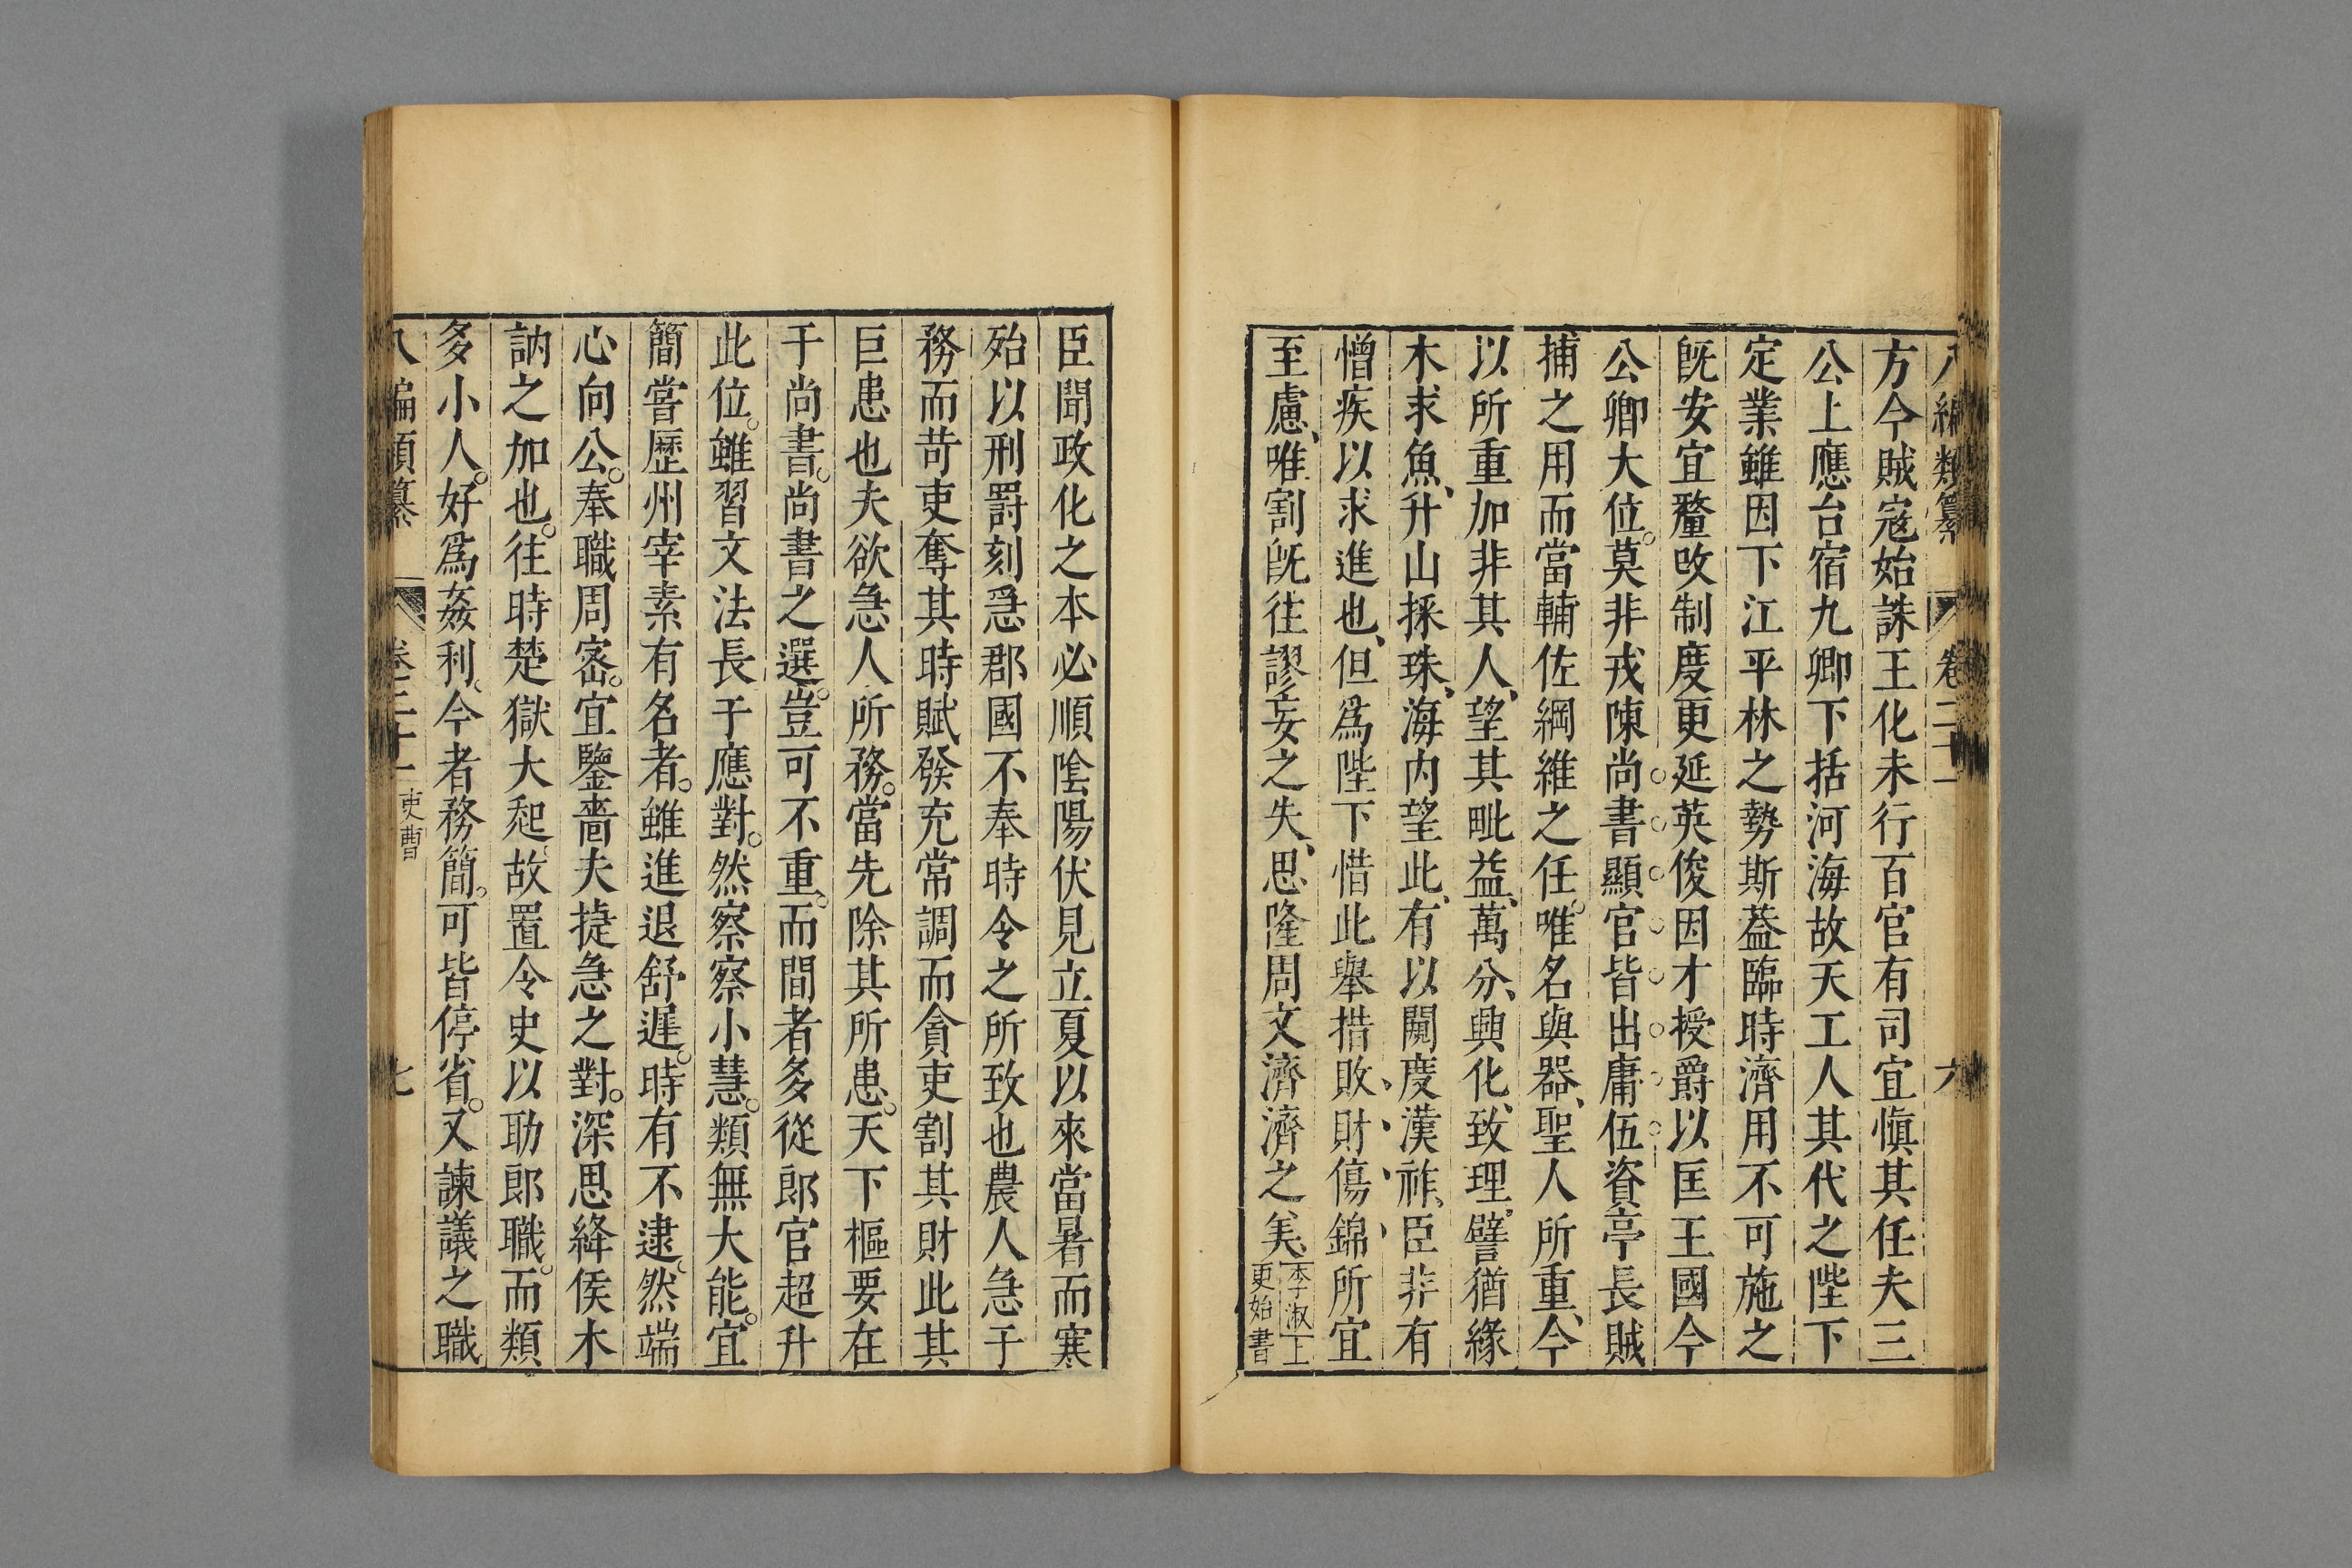 八編類纂 卷二十一 六
方今賊寇始誅王化未行百官有司宜愼其任夫三
公上應台宿九卿下括河海故天工人其代之陛下
定業雖因下江平林之勢斯葢臨時濟用不可施之
旣安宜釐改制度更延英俊因才授爵以匡王國今
公卿大位。莫非戎陳尚書顯官皆出庸伍資亭長賊
捕之用而當輔佐綱維之任。唯名與器、聖人所重、今
以所重加非其人、望其毗益、萬分、興化、致理。譬猶緣
木求魚、升山採珠、海內望此、有以闚度漢祚、臣非有
憎疾以求進也、但爲陛下惜此舉措敗、財、傷、錦、所宜
至慮、唯割旣往謬妄之失、思隆周文濟濟之美、李淑上
更始書
臣聞政化之本必順陰陽伏見立夏以來當暑而寒
殆以刑罰刻急郡國不奉時令之所致也農人急于
務而苛吏奪其時賦發充常調而貪吏割其財此其
巨患也夫欲急人所務。當先除其所患。天下樞要在
于尚書。尚書之選。豈可不重。而間者多從郎官超升
此位。雖習文法長于應對。然察察小慧。類無大能。宜
簡嘗歷州宰素有名者。雖進退舒遲。時有不逮、然端
心向公。奉職周密。宜鑒嗇夫捷急之對。深思絳侯木
訥之加也。往時楚獄大起、故置令史以助郎職。而類
多小人。好爲姦利、今者務簡。可皆停省。又諫議之職
八編類纂 卷二十一 吏曹 七